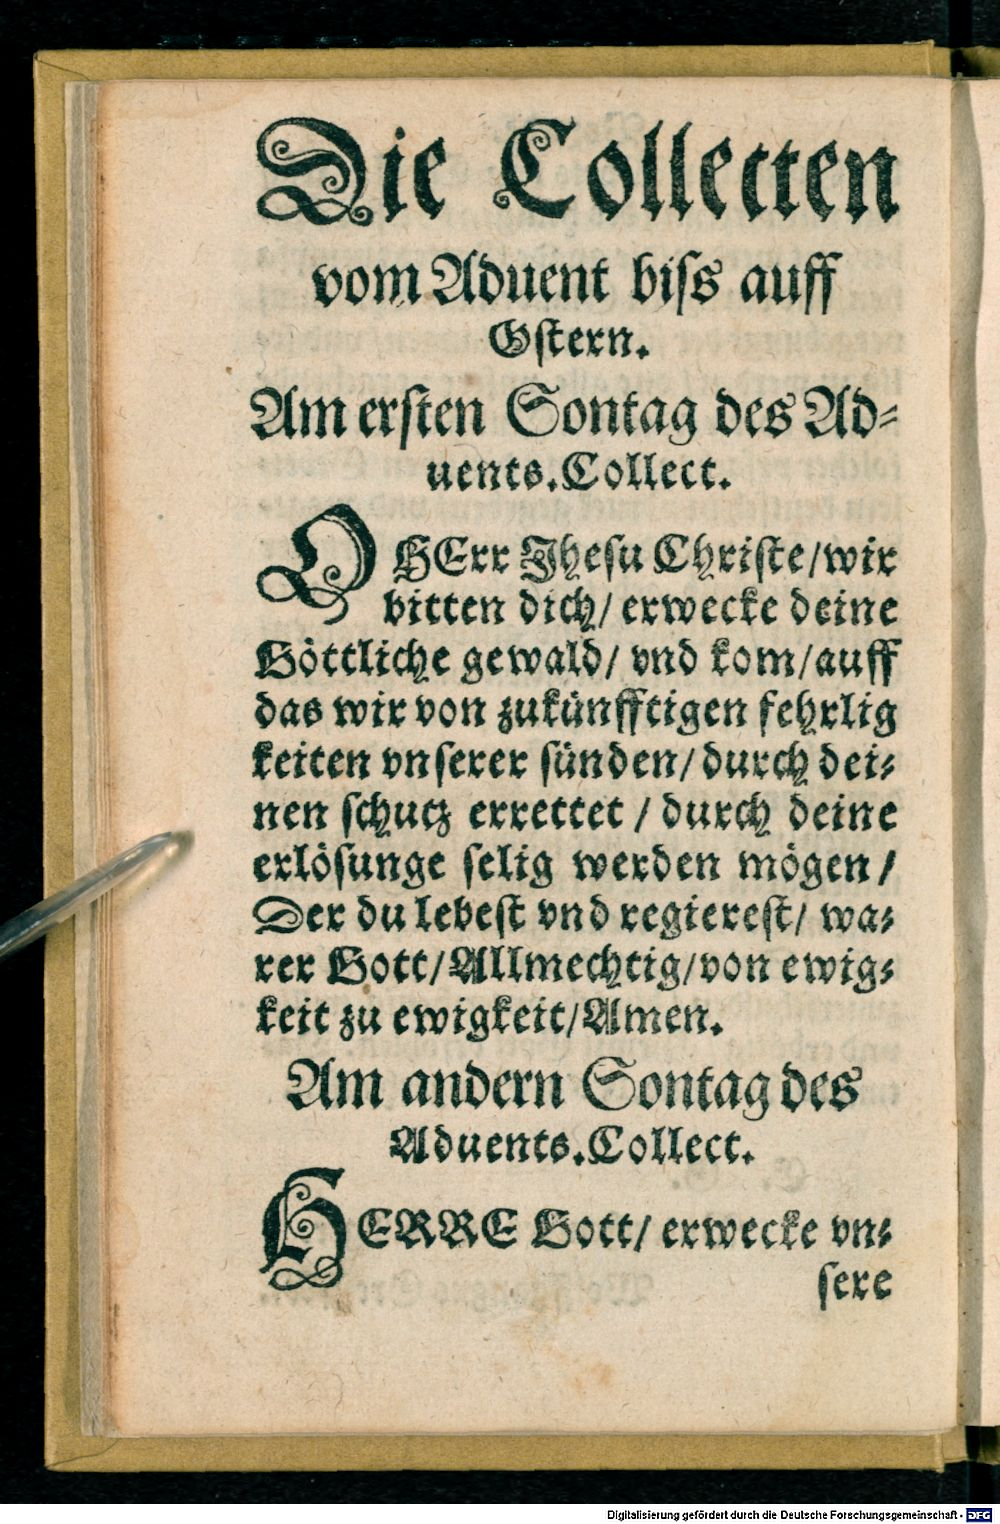 Die Collecten
vom Aduent biſs auff
Oſtern.
Am erſten Sontag des Ad⸗
uents. Collect.
O HErr Jheſu Chriſte/ wir
bitten dich/ erwecke deine
Göttliche gewald/ vnd kom/ auff
das wir von zukünfftigen fehrlig
keiten vnſerer ſünden/ durch dei⸗
nen ſchutz errettet / durch deine
erlöſunge ſelig werden mögen /
Der du lebeſt vnd regiereſt/ wa⸗
rer Gott/ Allmechtig/ von ewig⸗
keit zu ewigkeit/ Amen.
Am andern Sontag des
Aduents. Collect.
HERRE Gott/ erwecke vn⸗
ſere
Digitalisierung gefördert durch die Deutsche Forschungsgemeinschaft - DFG